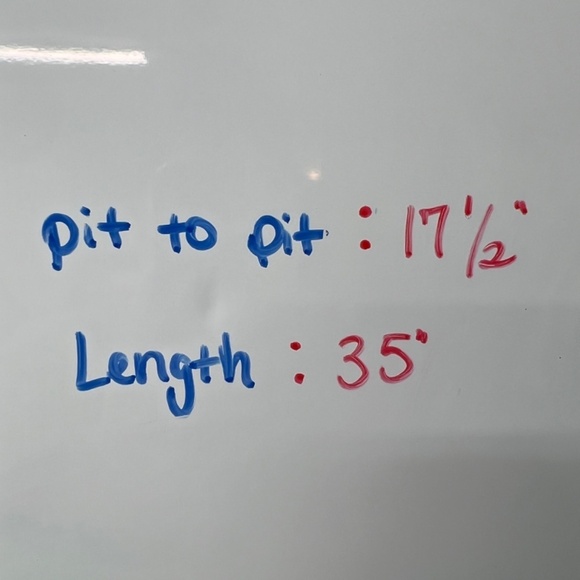 pit to pit : 17 1/2"
Length : 35"